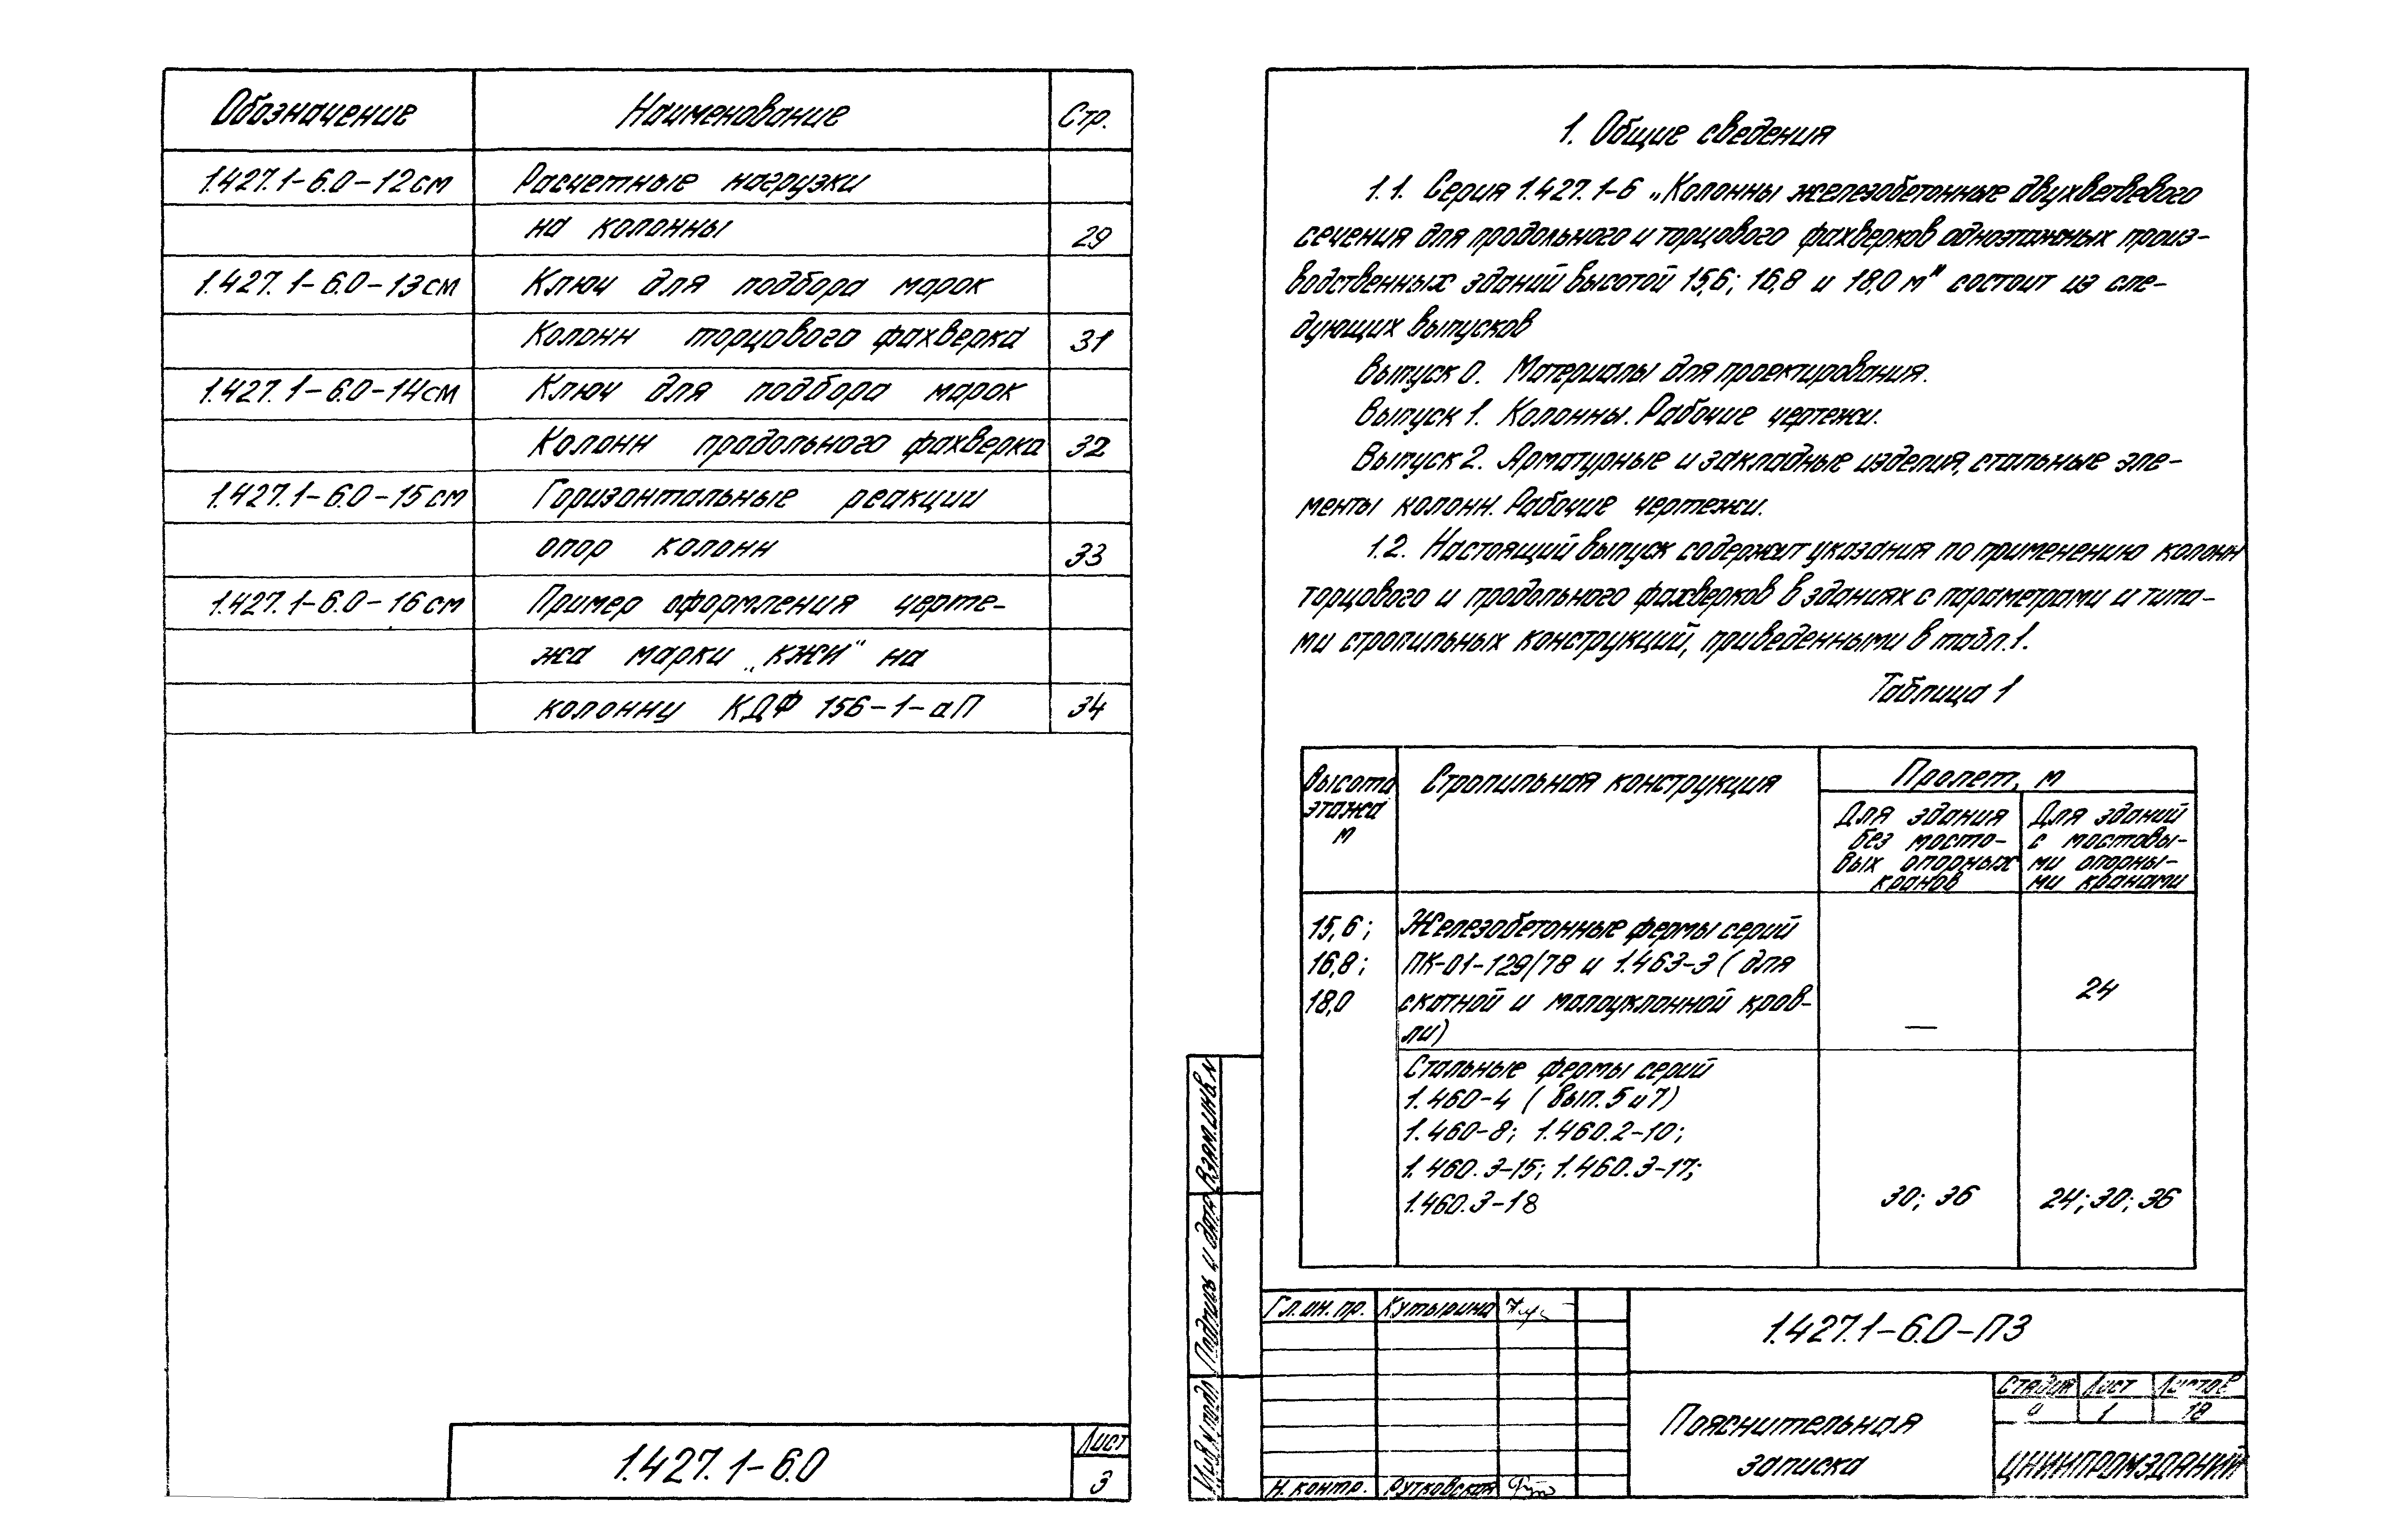 Обозначение Наименование Стр.
1.427.1-6.0-12см Расчетные нагрузки
на колонны 29
1.427.1-6.0-13см Ключ для подбора марок
колонн торцового фахверка 31
1.427.1-6.0-14см Ключ для подбора марок
колонн продольного фахверка 32
1.427.1-6.0-15см Горизонтальные реакции
опор колонн 33
1.427.1-6.0-16см Пример оформления черте-
жа марки „КЖИ" на
колонну КДФ 156-1-аП 34
1.427.1-6.0
Лист
3
1. Общие сведения
1.1. Серия 1.427.1-6 „Колонны железобетонные двухветвевого
сечения для продольного и торцового фахверков одноэтажных произ-
водственных зданий высотой 15,6; 16,8 и 18,0 м" состоит из сле-
дующих выпусков
Выпуск 0. Материалы для проектирования.
Выпуск 1. Колонны. Рабочие чертежи.
Выпуск 2. Арматурные и закладные изделия, стальные эле-
менты колонн. Рабочие чертежи.
1.2. Настоящий выпуск содержит указания по применению колонн
торцового и продольного фахверков в зданиях с параметрами и типа-
ми стропильных конструкций, приведенными в табл.1.
Таблица 1
Высота
этажа
м
Стропильная конструкция
Пролет, м
Для здания
без мосто-
вых опорных
кранов
Для зданий
с мостовы-
ми опорны-
ми кранами
15,6;
16,8;
18,0
Железобетонные фермы серий
ПК-01-129/78 и 1.463-3 (для
скатной и малоуклонной кров-
ли)
—
24
Стальные фермы серий
1.460-4 (вып. 5 и 7)
1.460-8; 1.460.2-10;
1.460.3-15; 1.460.3-17;
1.460.3-18
30; 36
24; 30; 36
Взам.инв.N
Подпись и дата
Инв.N подл
Гл.ин.пр. Кутырина
Н.контр. Рутковская
1.427.1-6.0-ПЗ
Пояснительная
записка
Стадия Лист Листов
1 18
ЦНИИПРОМЗДАНИЙ